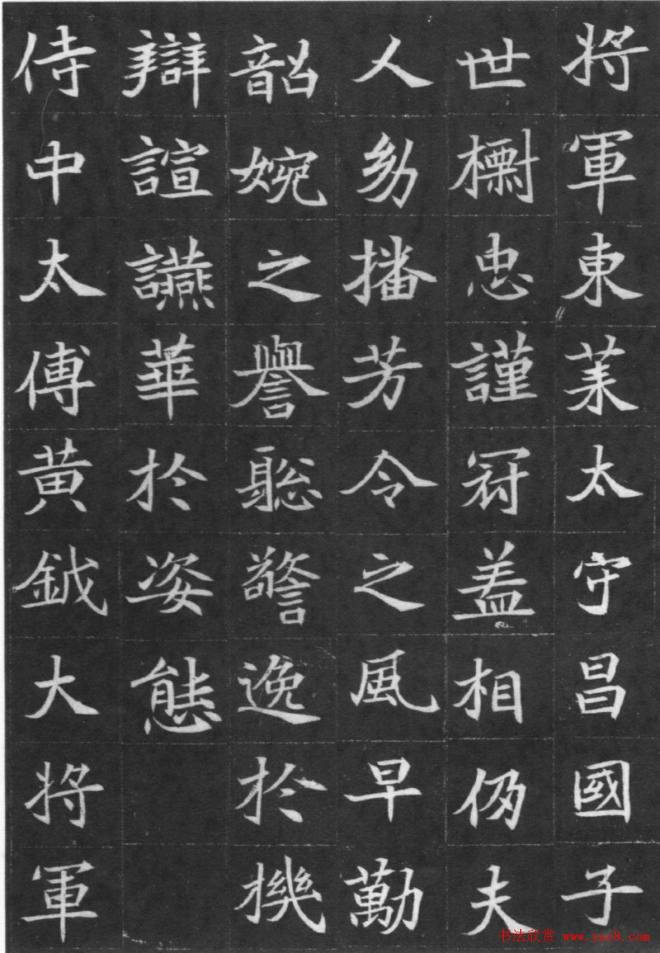 將軍東萊太守昌國子
世樹忠謹冠蓋相仍夫
人幼播芳令之風早勤
韶婉之譽聡警逸於機
辯諠讌華於姿態
侍中太傅黄鉞大將軍
书法欣赏 www.yac8.com